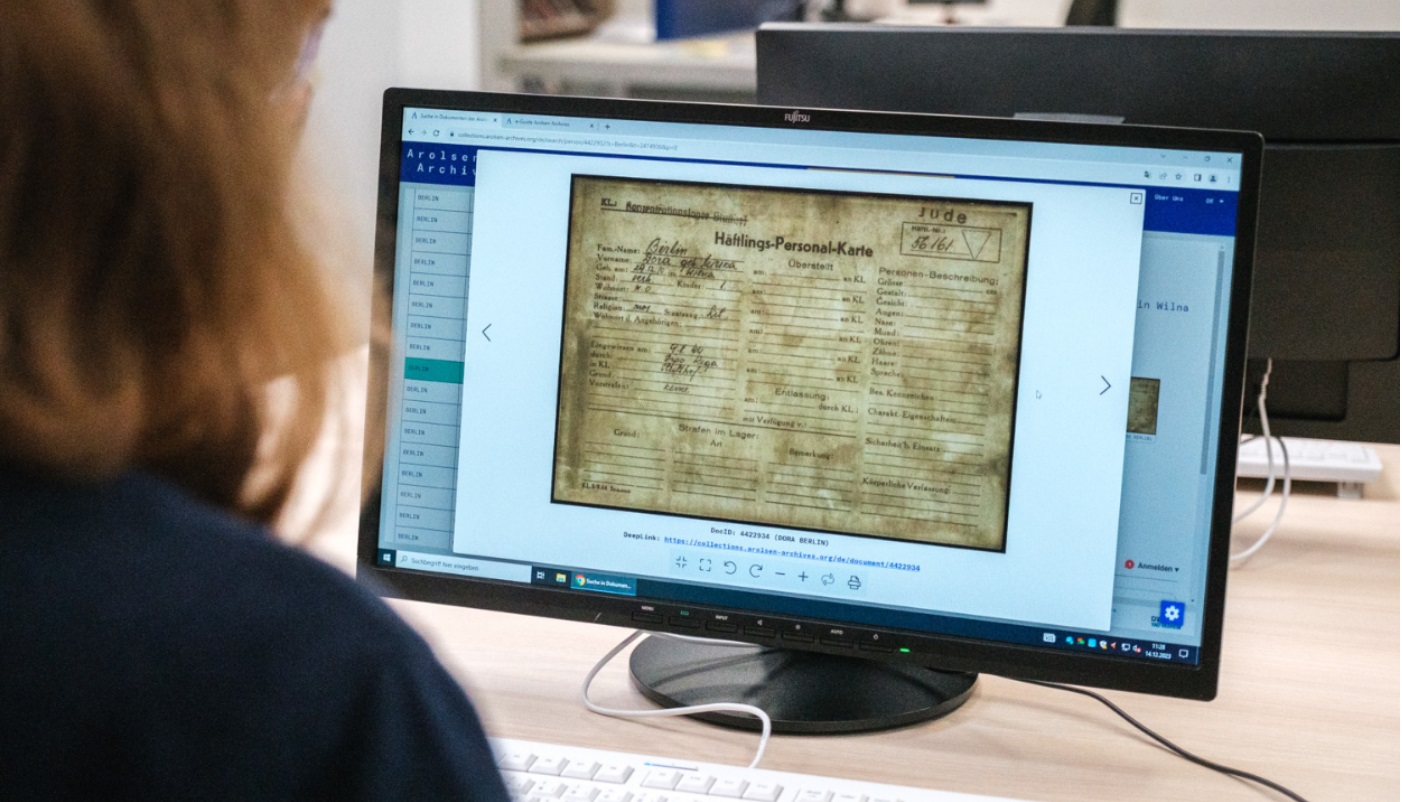 FUJITSU
Suche in Dokumenten
e-Guide Arolsen Archives
Arolsen
Archiv
Über Uns
DE
BERLIN
BERLIN
BERLIN
BERLIN
BERLIN
BERLIN
BERLIN
BERLIN
BERLIN
BERLIN
BERLIN
BERLIN
BERLIN
BERLIN
BERLIN
BERLIN
in Wilna
KL: Konzentrationslager
Jude
Häftl.-Nr.:
56161.
Häftlings-Personal-Karte
Fam.-Name: Berlin
Überstellt
Personen-Beschreibung:
Vorname: Dora
am: an KL
Grösse cm
Geb. am: in Wilna
Gestalt:
Stand: verh. Kinder: 1
am: an KL
Gesicht:
Wohnort:
Augen:
Strasse:
am: an KL
Nase:
Religion: Staatsang.
Mund:
Wohnort d. Angehörigen:
am: an KL
Ohren:
Zähne:
Eingewiesen am:
am: an KL
Haare:
durch:
Sprache:
in KL:
am: an KL
Grund:
Bes. Kennzeichen:
Vorstrafen: keine
Entlassung:
am: durch KL:
Charakt. Eigenschaften:
mit Verfügung v.:
Strafen im Lager:
Grund: Art Bemerkung:
Sicherheit b. Einsatz:
Körperliche Verfassung:
DocID: 4422934 (DORA BERLIN)
DeepLink: https://collections.arolsen-archives.org/de/document/4422934
Anmelden
Suchbegriff hier eingeben
Suche in Dokumen...
11:28
14.12.2023
MENU
ECO
INPUT
AUTO